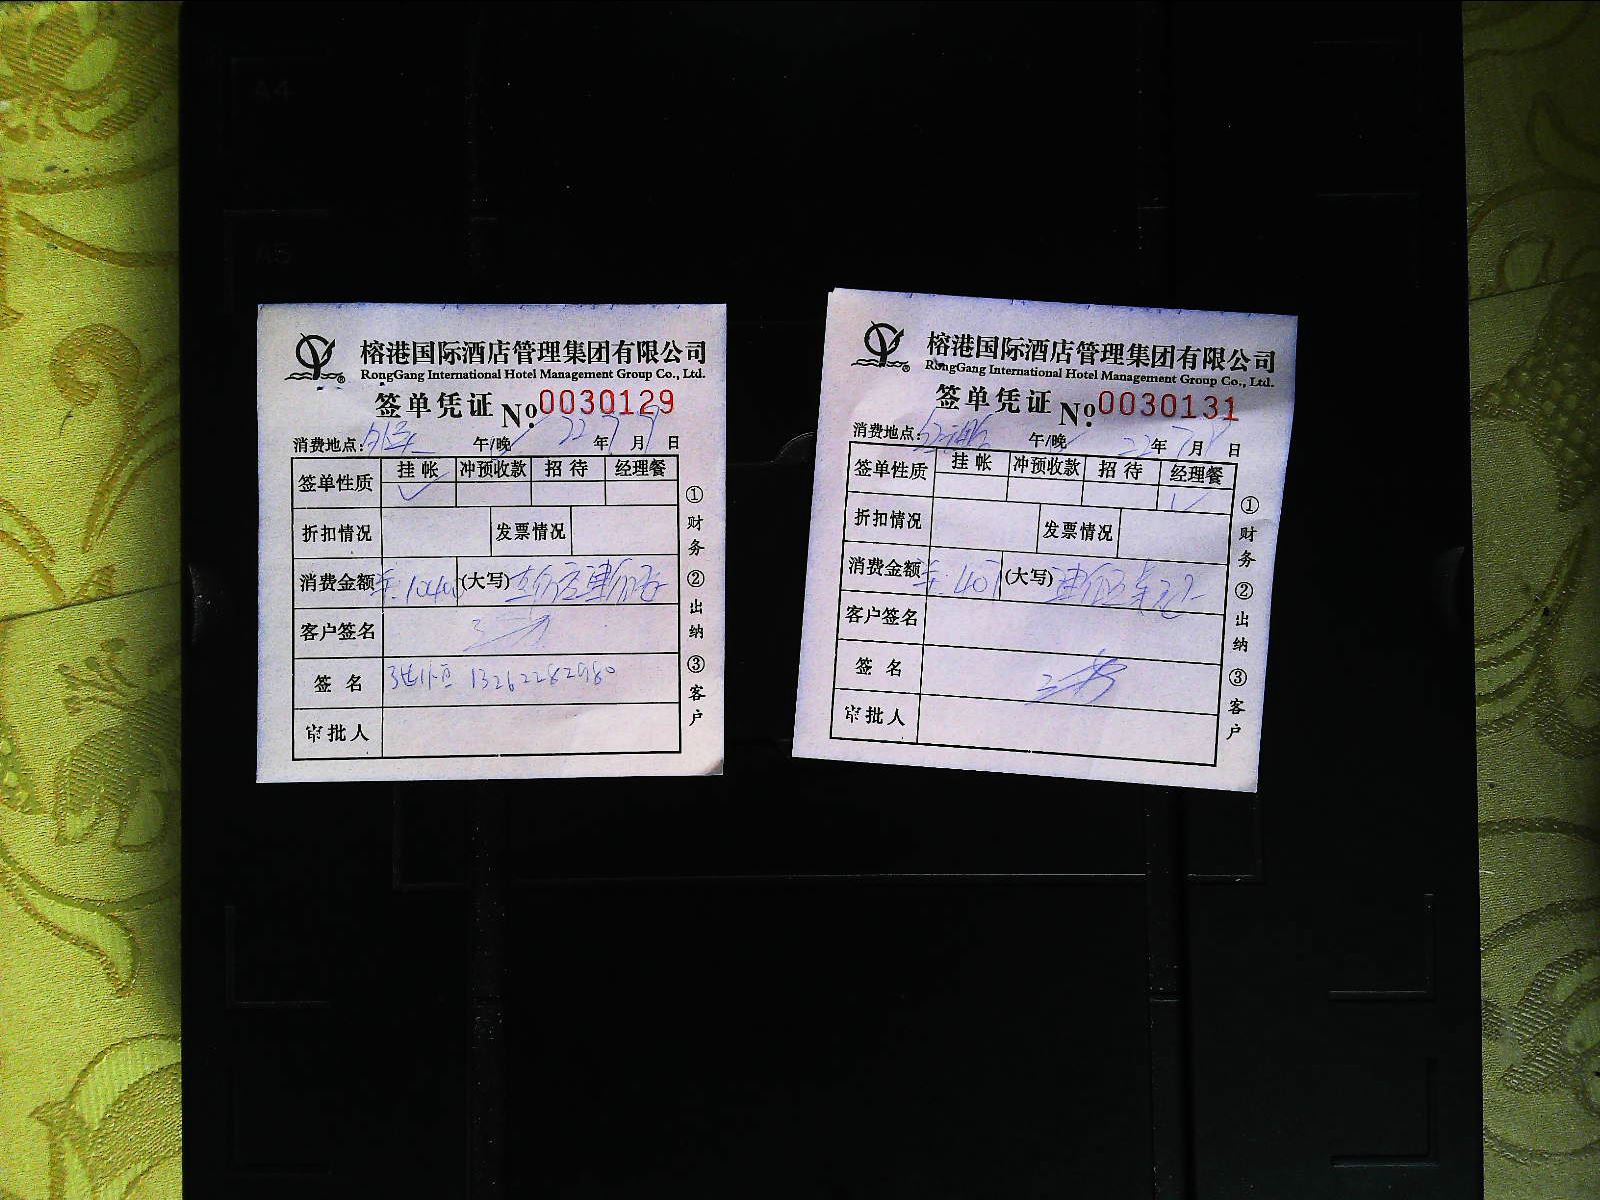 A4
A5
榕港国际酒店管理集团有限公司
RongGang International Hotel Management Group Co., Ltd.
签单凭证 No:0030129
消费地点: 午/晚 22年7月9日
签单性质 挂帐 冲预收款 招待 经理餐
折扣情况 发票情况
消费金额 (大写)
客户签名
签名 13262282980
审批人
①财务 ②出纳 ③客户
榕港国际酒店管理集团有限公司
RongGang International Hotel Management Group Co., Ltd.
签单凭证 No:0030131
消费地点: 午/晚 22年7月9日
签单性质 挂帐 冲预收款 招待 经理餐
折扣情况 发票情况
消费金额 (大写)
客户签名
签名
审批人
①财务 ②出纳 ③客户